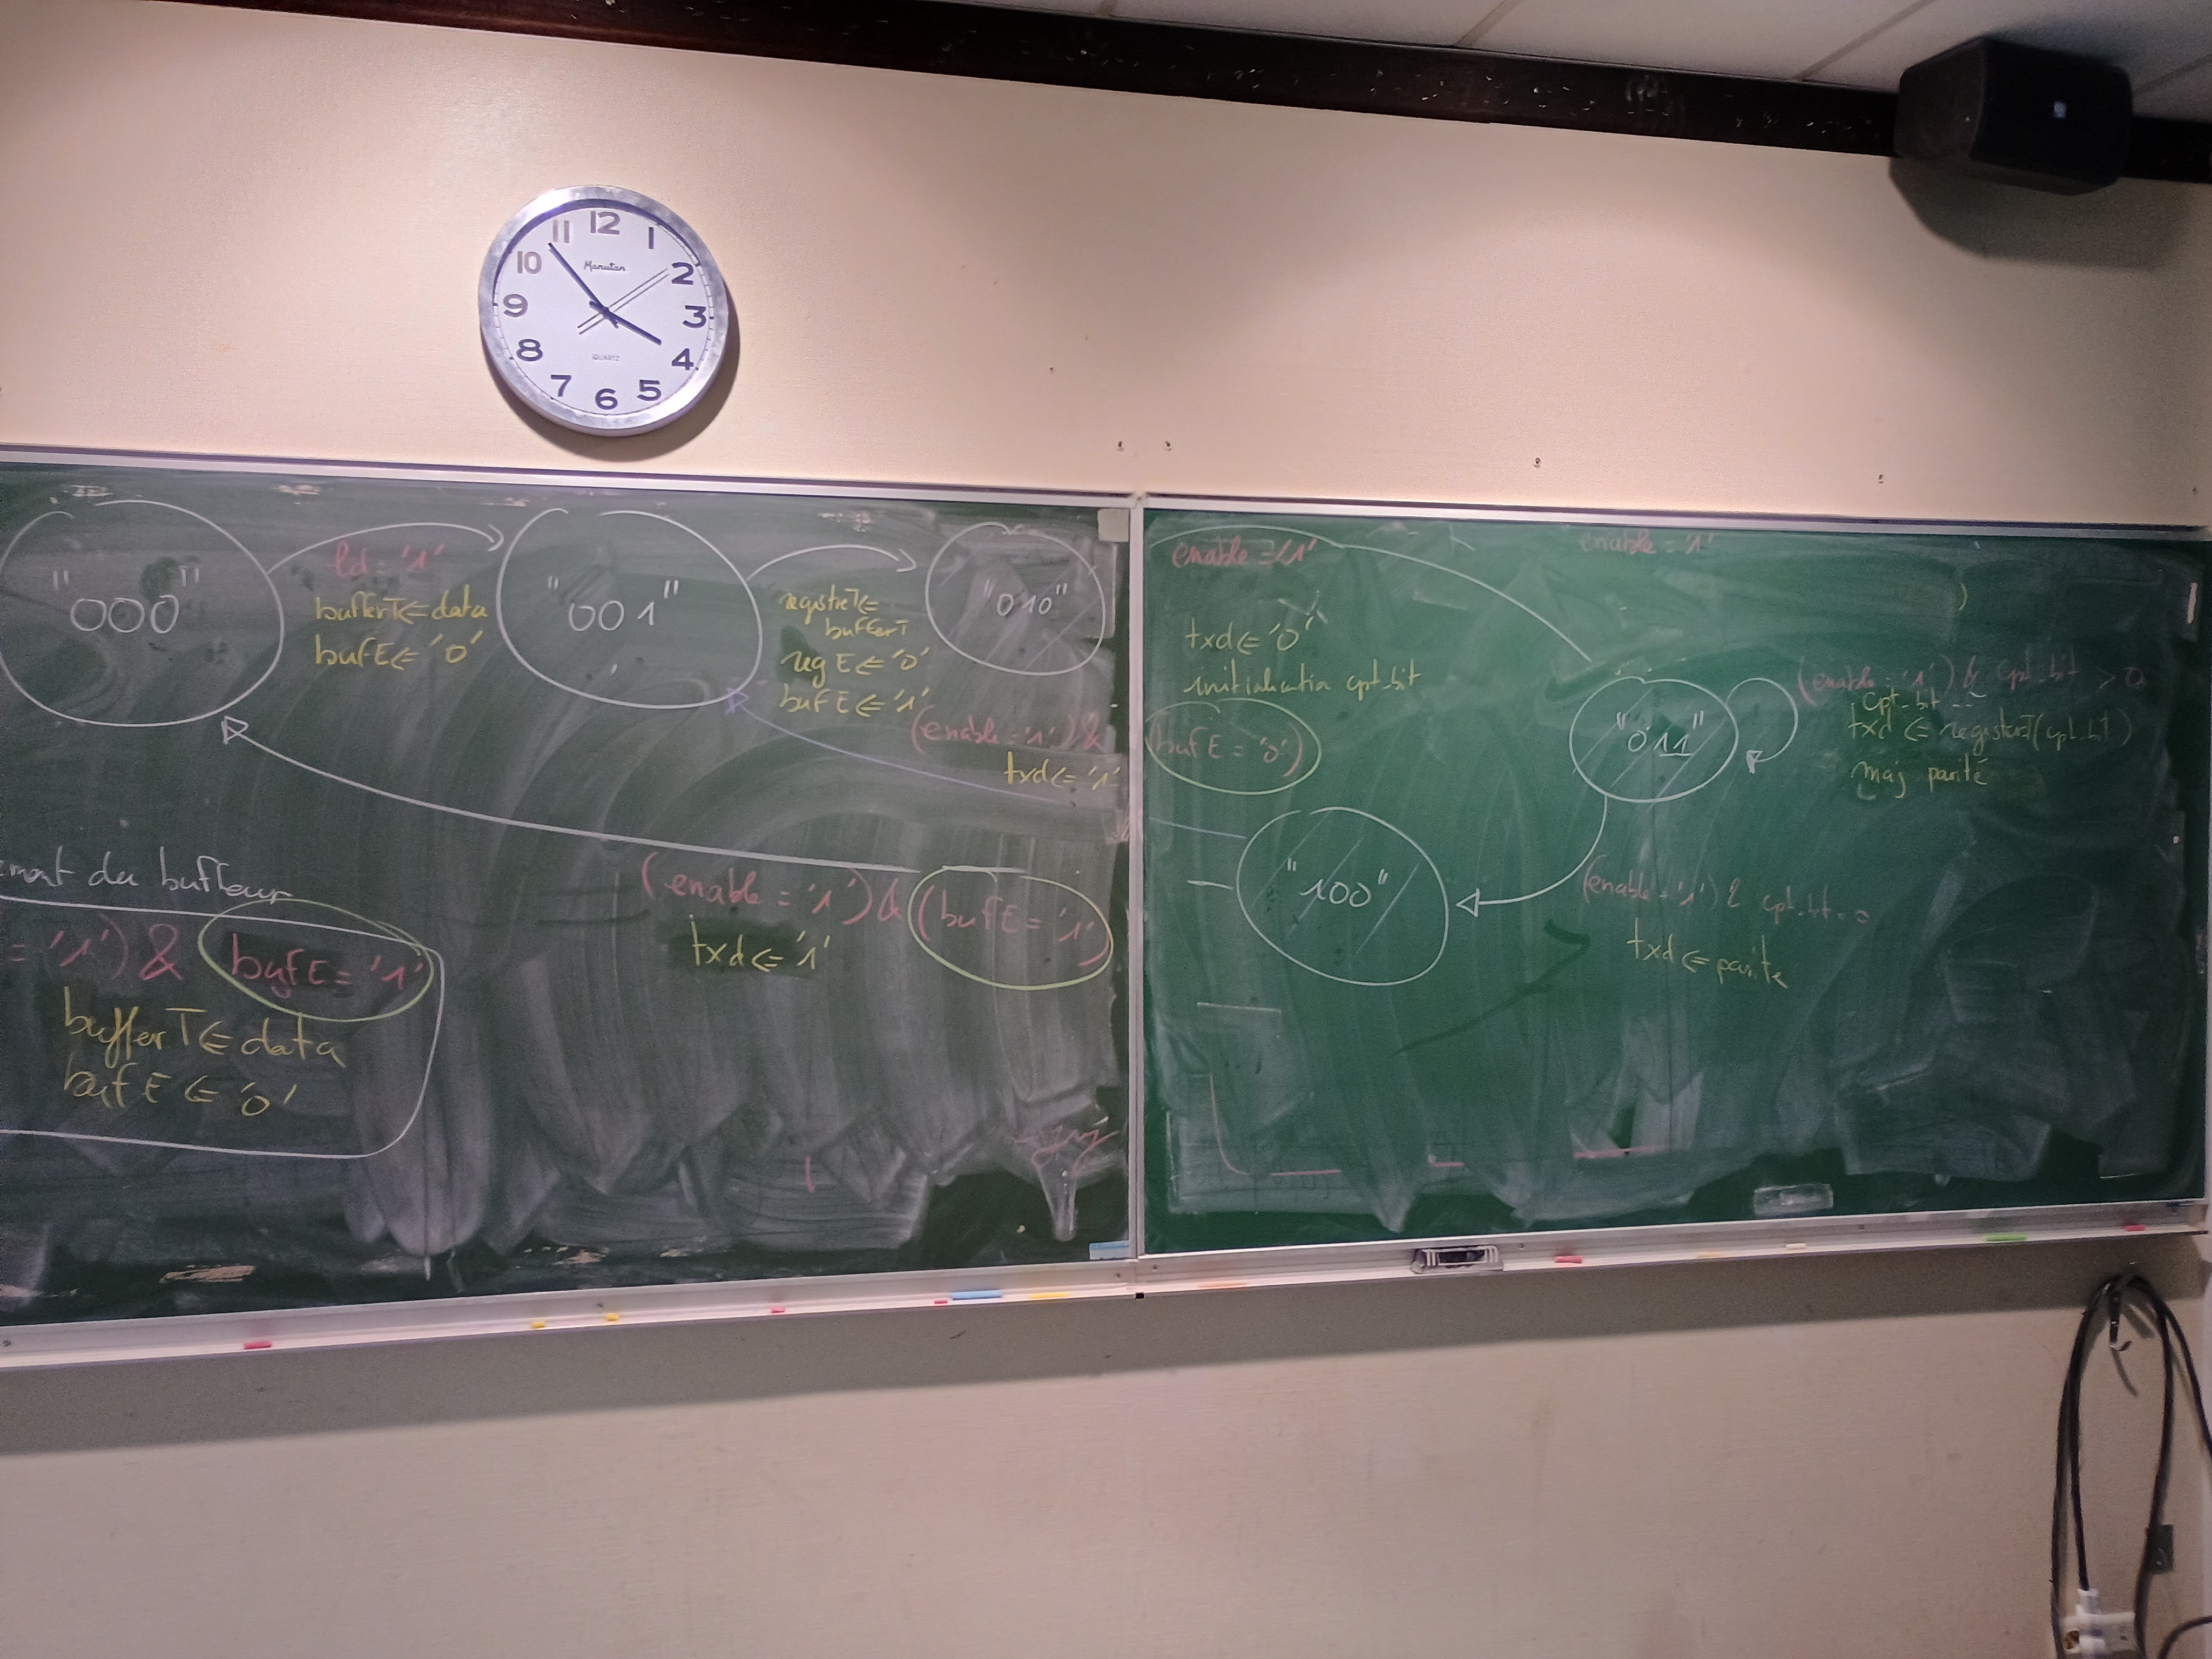 12
11
1
10
2
9
3
8
4
7
5
6
Manutan
QUARTZ
"000"
ld = '1'
bufferT <= data
bufE <= '0'
"001"
registreT <=
bufferT
regE <= '0'
bufE <= '1'
"010"
enable = '1'
txd <= '0'
initialisation cpt_bit
enable = '1'
(enable = '1') &
(bufE = '0')
txd <= '1'
"011"
(enable = '1') & cpt_bit > 0
cpt_bit --
txd <= registreT(cpt_bit)
màj parité
"100"
(enable = '1') & cpt_bit = 0
txd <= parite
(enable = '1') & (bufE = '1')
txd <= '1'
du buffeur
= '1') & bufE = '1'
bufferT <= data
bufE <= '0'